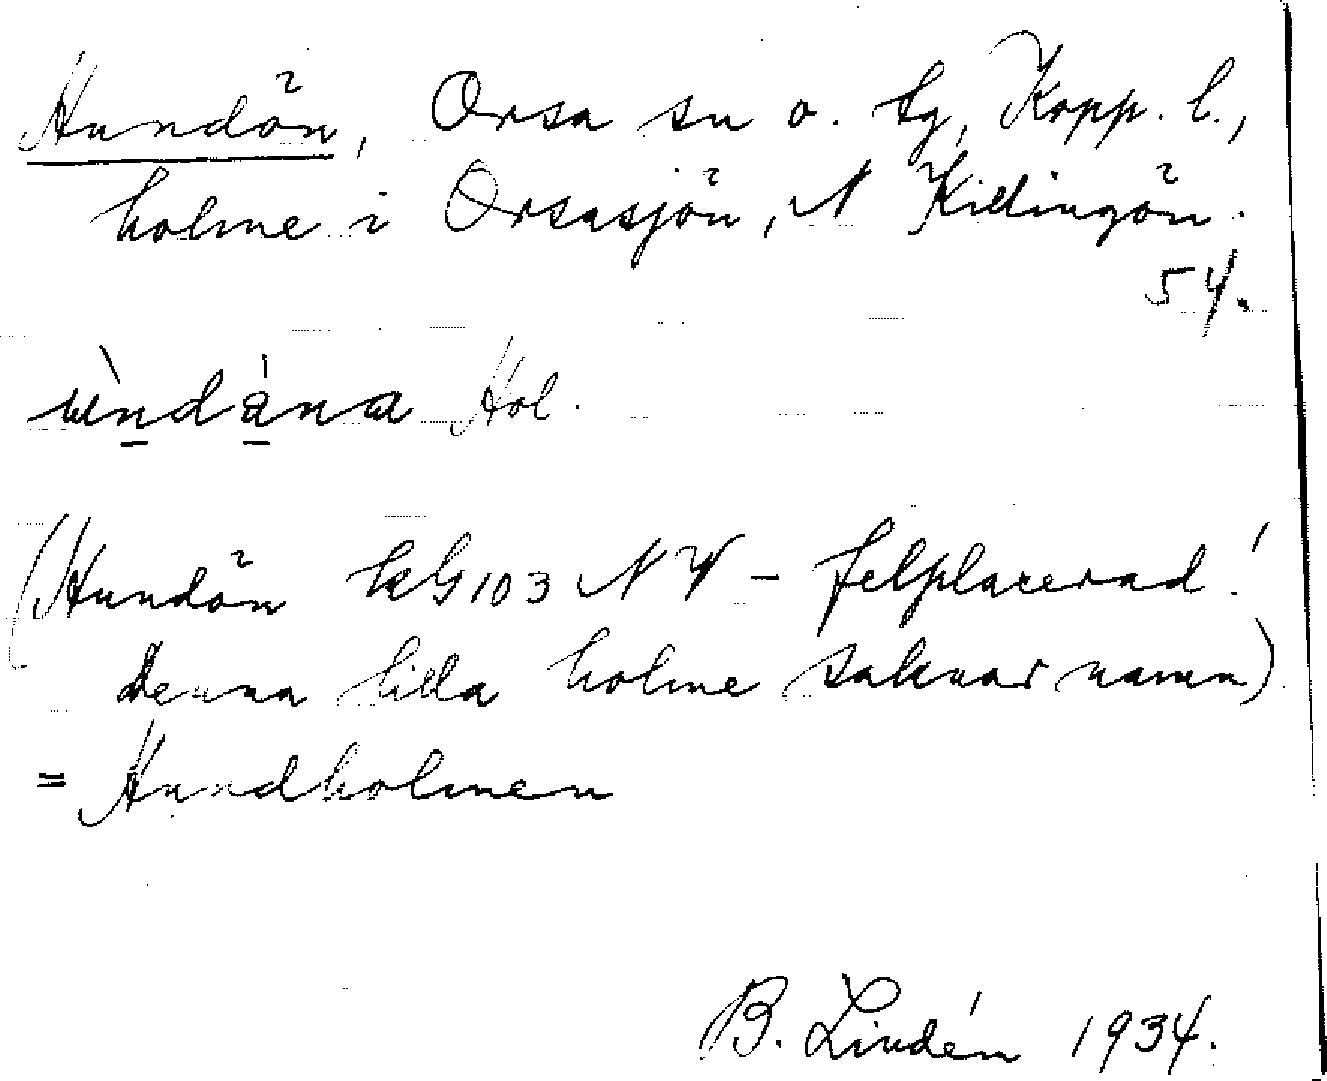 Hundön, Orsa sn o. tg, Kopp. l.,
holme i Orsasjön, N Killingön.
54.
ùndána Hol.
(Hundön kG103 NV – felplacerad!
Denna lilla holme saknar namn)
= Hundholmen
B. Lindén 1934.